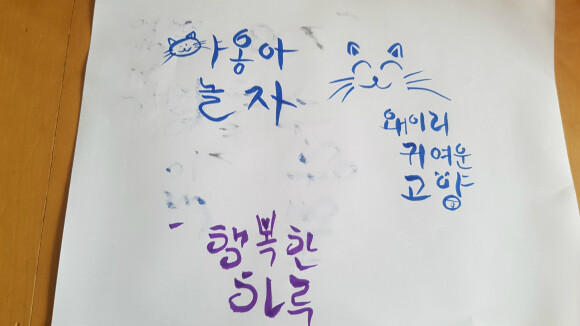 야옹아
놀자
왜이리
귀여운
고양
행복한
하루